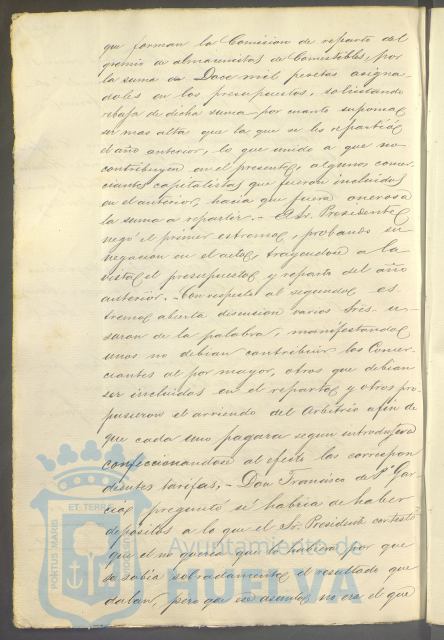 que forman la Comision de reparto del
gremio de almacenistas de Comestibles, por
la suma de Doce mil pesetas asigna-
dales en los presupuestos, solicitando
rebaja de dicha suma por cuanto suponia
ser mas alta que la que se les repartió
el año anterior, lo que unido a que no
contribuyen en el presente, algunos comer
ciantes capitalistas que fueron incluidos
en el anterior, hacia que fuera onerosa
la suma a repartir.- El Sr. Presidente
negó el primer estremo, probando su
negacion en el acto, trayendose a la
vista el presupuesto y reparto del año
anterior.- Con respecto al segundo es
tremo, abierta discusion varios Sres. u-
saron de la palabra, manifestando
unos no debian contribuir los Comer
ciantes al por mayor, otros que debian
ser incluidos en el reparto y otros pro-
pusieron el arriendo del Arbitrio afin de
que cada uno pagara segun introdujera
confeccionandose al efecto las correspon
dientes tarifas.- Don Francisco de P. Gar
cia, preguntó si habria de haber
depositos a lo que el Sr. Presidente contestó
que el no queria que lo hubiera por que
se sabia sobradamente el resultado que
daban, pero que ese asunto no era el que
PORTUS MARIS ET TERRAE CUSTODIA
Ayuntamiento de
HUELVA